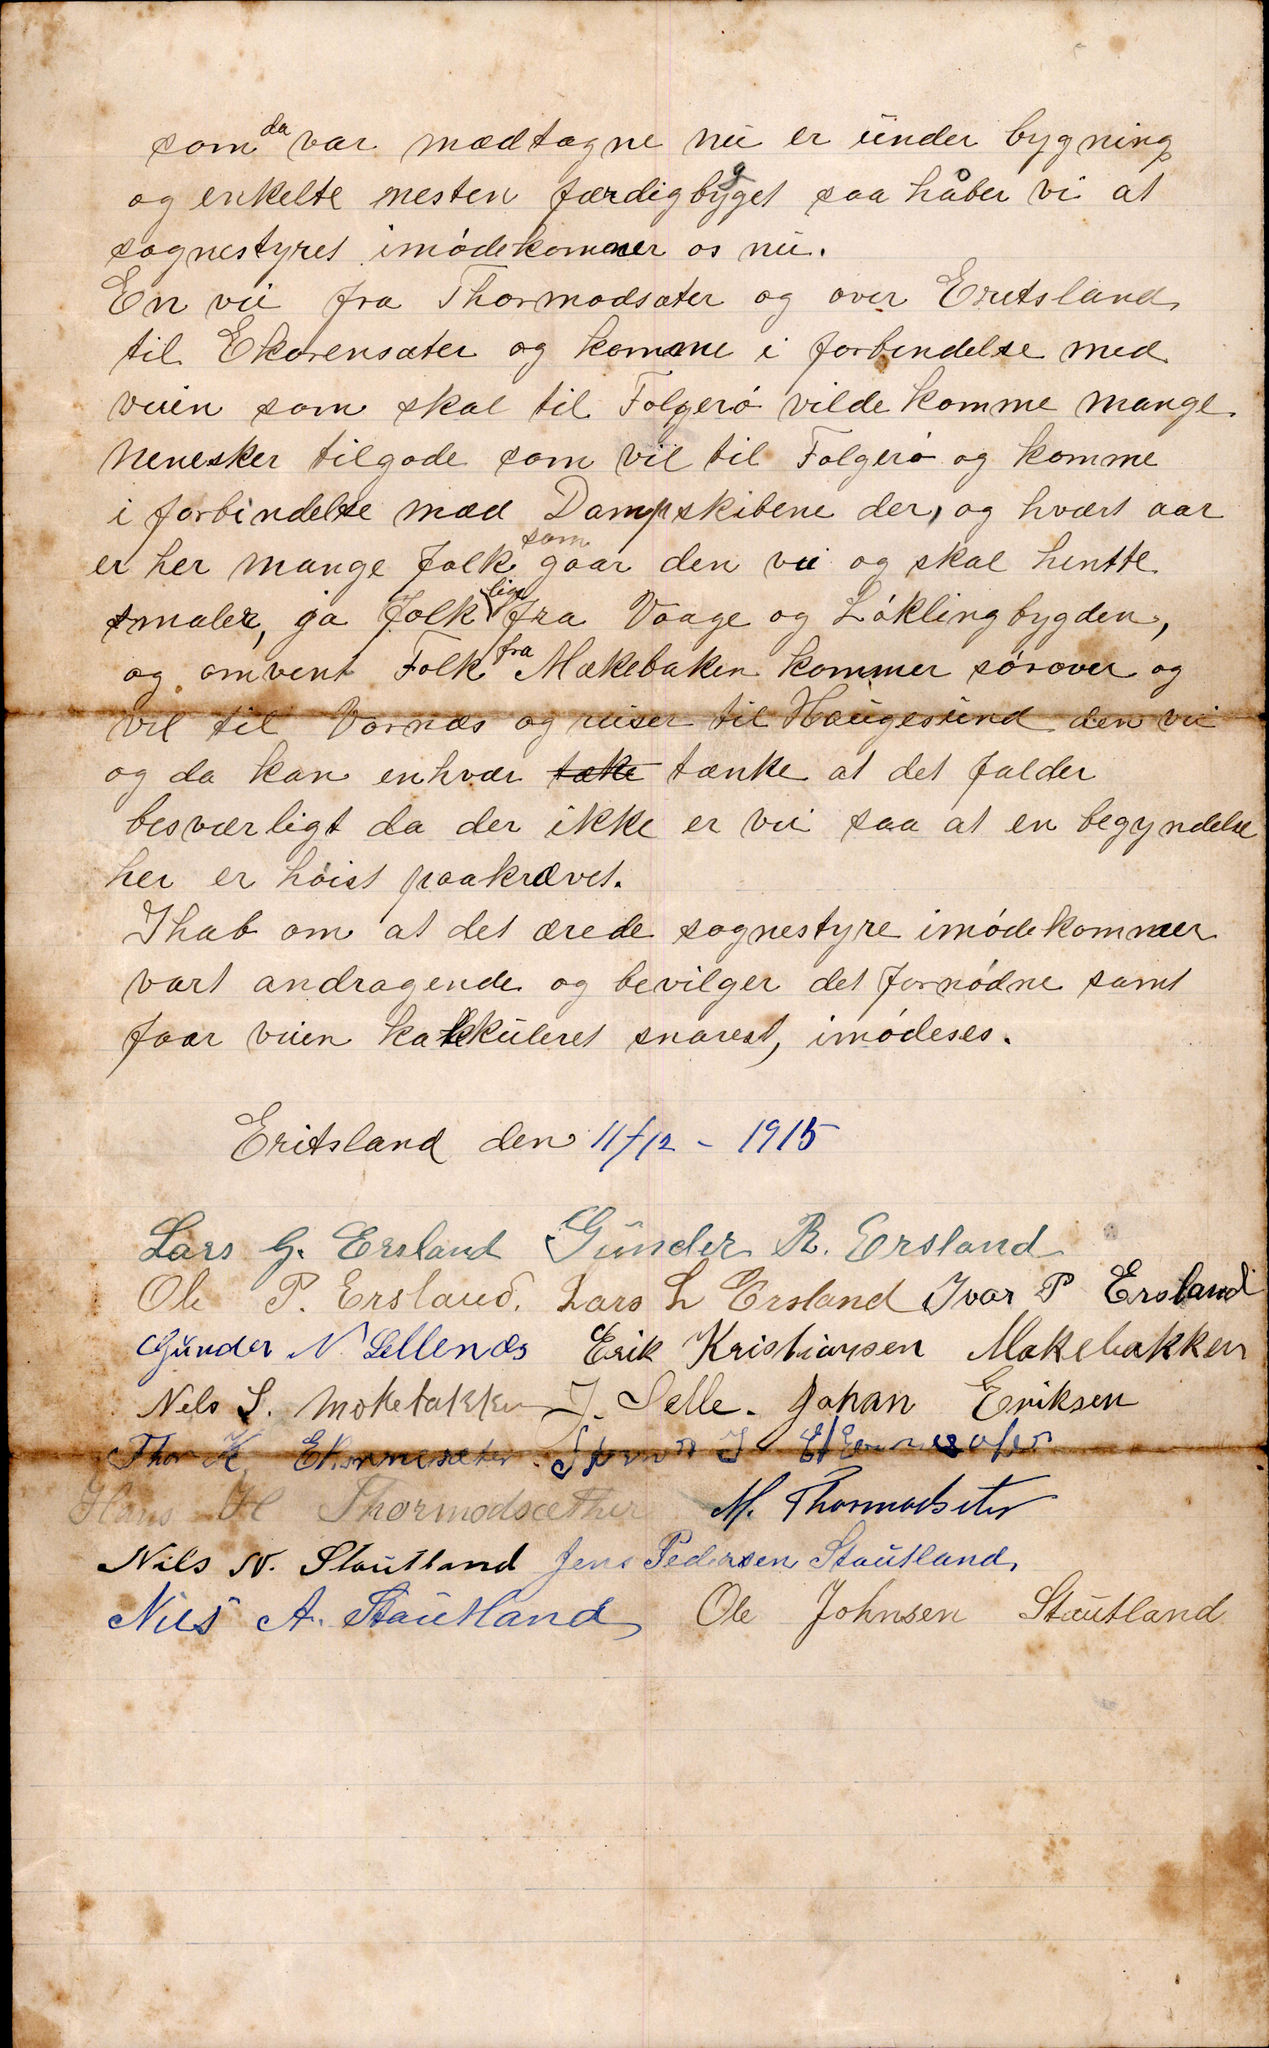 som da var mædtagne nu er under bygning
og enkelte nesten færdigbygget saa håber vi at
sognestyret imødekommer os nu.
En vei fra Thormodsæter og over Eritsland
til Ekorensæter og komme i forbindelse med
veien som skal til Folgerö vilde komme mange
Menesker tilgode som vil til Folgerö og komme
i forbindelse mæd Dampskibene der, og hvært aar
er her mange folk som gaar den vei og skal hentte
smaler, ja Folk lige fra Vaage og Löklingbygden,
og omvent Folk fra Mækebaken kommer sörover og
vil til Vornæs og reiser til Haugesund den vei
og da kan enhvær take tænke at det falder
besværligt da der ikke er vei saa at en begyndelse
her er höist paakrævet.
I hab om at det ærede sognestyre imödekommer
vart andragende og bevilger det fornödne samt
faar veien kalkuleret snarest, imödeses.
Eritsland den 11/12 - 1915
Lars G. Ersland Gunder R. Ersland
Ole P. Ersland. Lars L Ersland Ivar P Ersland
Gunder N. Lellenæs Erik Kristiansen Mokebakken
Nels L. Mokebakken J. Selle. Johan Eriksen
Thor K. Ekornesæter. J Ekornesæter
Hans H Thormodsæther M. Thormodsæter
Nils N. Stautland Jens Pedersen Stautland
Nils A. Stautland Ole Johnsen Stautland